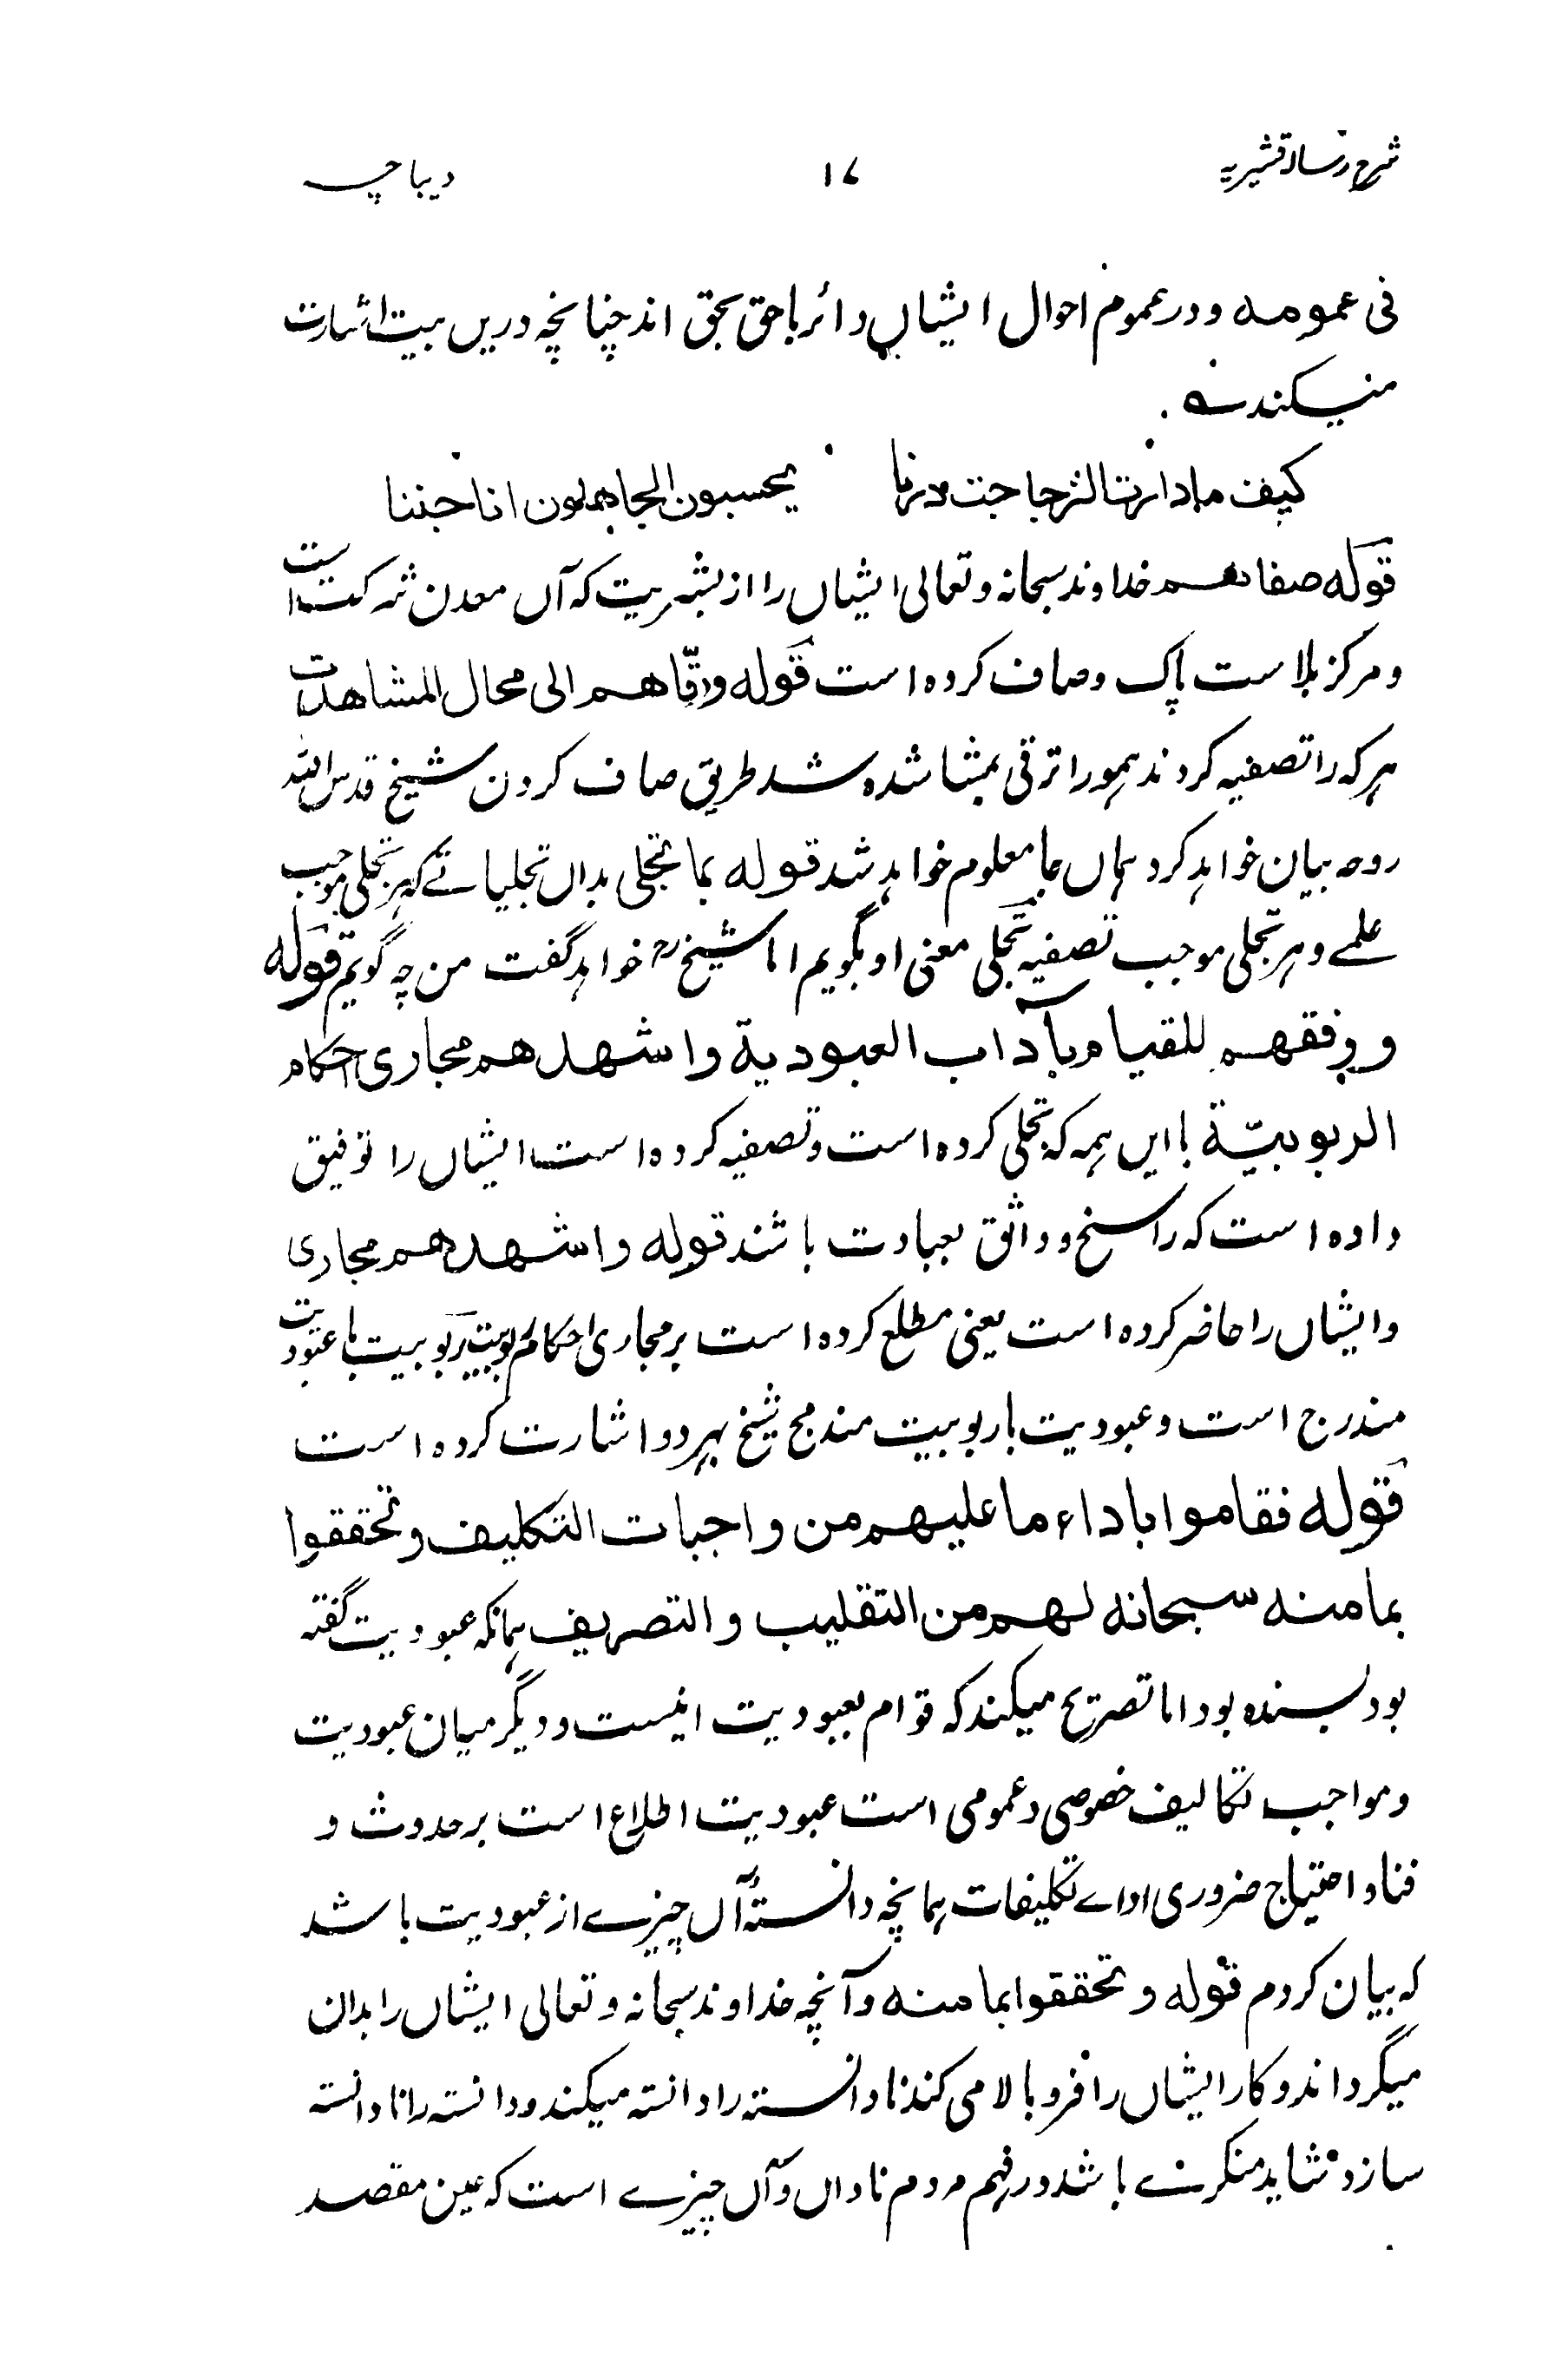 شرح رسالۂ قشیریہ ۱۷ دیباچہ
فی عمومہ و در عموم احوال ایشاں دائر با حق بحق اند چنانچہ دریں بیت اشارت
میکند شعر
کیف مادارت الزجاجت درنا یحسبون الجاہلون انا جننا
قولہ صفاہم خداوند سبحانہ و تعالی ایشاں را از بشریت کہ آں معدن شرکت است
و مرکز بلاست پاک و صاف کردہ است قولہ ورقّاھم الی محال المشاھدات
ہر کہ را تصفیہ کردند ہمو را ترقی بمشاہدہ شد طریق صاف کردن شیخ قدس اللہ
روحہ بیان خواہد کرد ہماں جا معلوم خواہد شد قولہ بما تجلی بداں تجلیاتے کہ ہر تجلی موجب
علمے و ہر تجلی موجب تصفیہ تجلی معنی او بگویم اما شیخ رح خواہد گفت من چہ گویم قولہ
ووفقھم للقیام بآداب العبودیۃ واشھدھم مجاری احکام
الربوبیّۃ با ایں ہمہ کہ تجلی کردہ است و تصفیہ کردہ است ایشاں را توفیق
دادہ است کہ راسخ و واثق بعبادت باشند قولہ واشھدھم مجاری
و ایشاں را حاضر کردہ است یعنی مطلع کردہ است بر مجاری احکام ربوبیت ربوبیت با عبودیت
مندرج است و عبودیت با ربوبیت مندمج شیخ بہر دو اشارت کردہ است
قولہ فقاموا باداء ما علیھم من واجبات التکلیف وتحققوا
بما منہ سبحانہ لھم من التقلیب والتصریف ہمانکہ عبودیت گفتہ
بود بسندہ بود اما تصریح میکند کہ قوام بعبودیت اینست و دیگر میان عبودیت
و مواجب تکالیف خصوصی و عمومی است عبودیت اطلاع است بر حدوث و
فنا و احتیاج ضروری اداے تکلیفات ہمانچہ دانستۂ آں چیزے از عبودیت باشد
کہ بیان کردم قولہ و تحققوا بما منہ و آنچہ خداوند سبحانہ و تعالی ایشاں را بدان
میگرداند و کار ایشاں را فرو بالا می کند نادانستہ را دانستہ میکند و دانستہ را نادانستہ
سازد شاید منکرے باشد در فہم مردم ناداں و آں چیزے است کہ عین مقصد